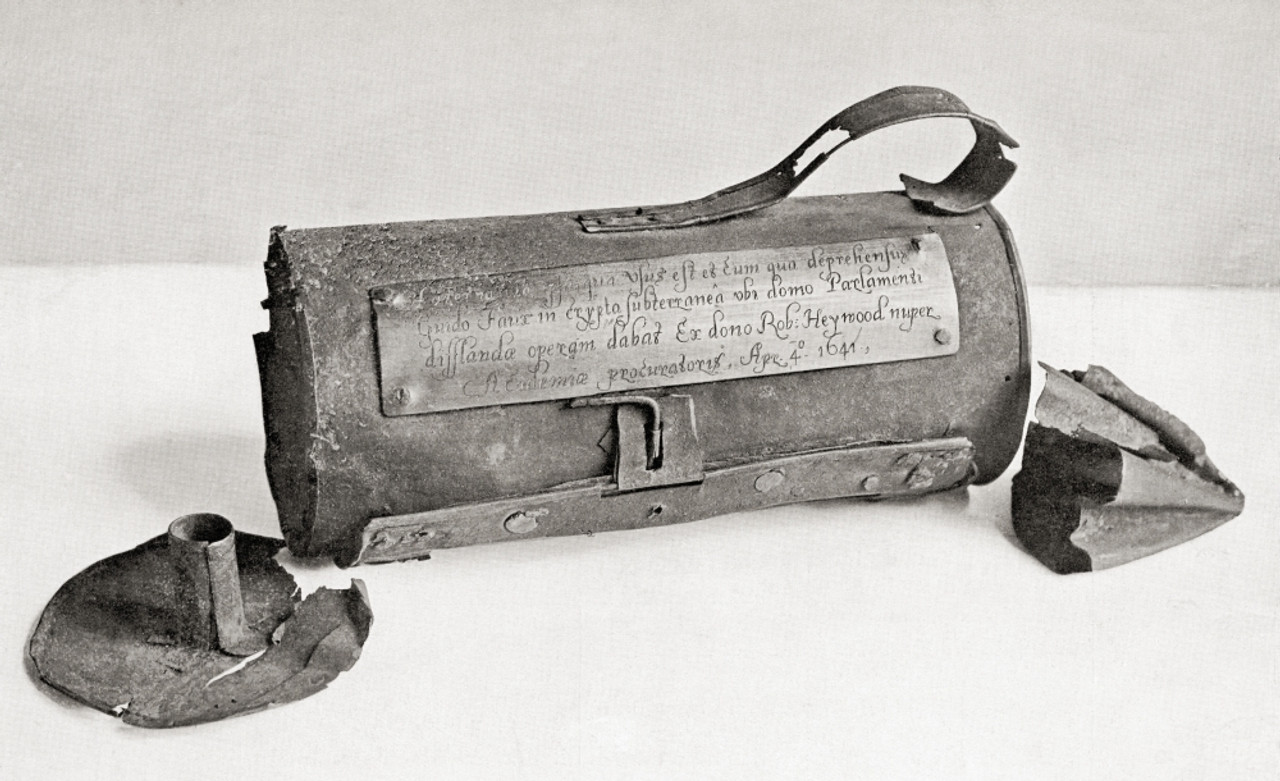 Laterna illa ipsa qua usus est et cum qua deprehensus
Guido Faux in crypta subterraneâ ubi domo Parlamenti
difflandæ operam dabat Ex dono Rob: Heywood nuper
Academiæ procuratoris, Apr. 4º. 1641,